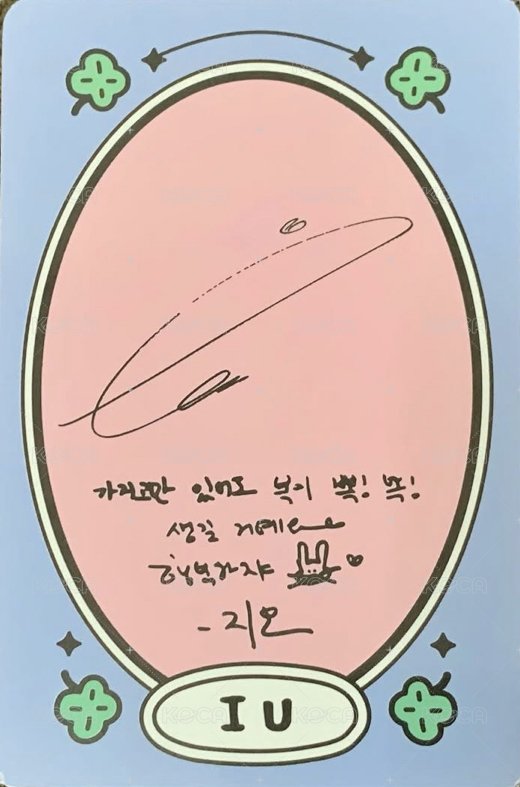 가지고만 있어도 복이 뽁! 뽁!
생길 거예
행복하자
- 지은
I U
KOCA